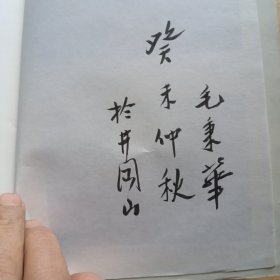 毛秉華
癸未仲秋
於井岡山